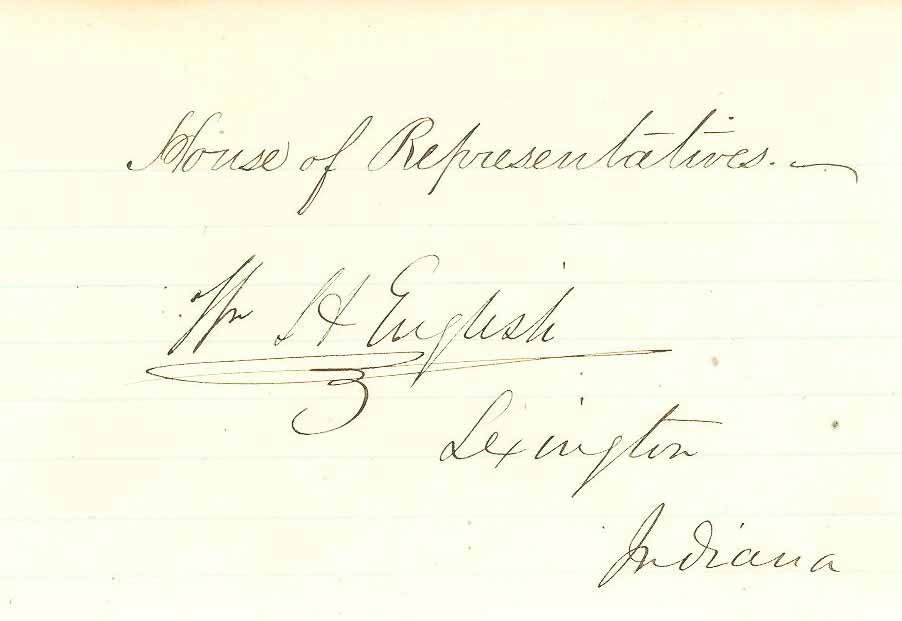 House of Representatives.
Wm H English
Lexington
Indiana